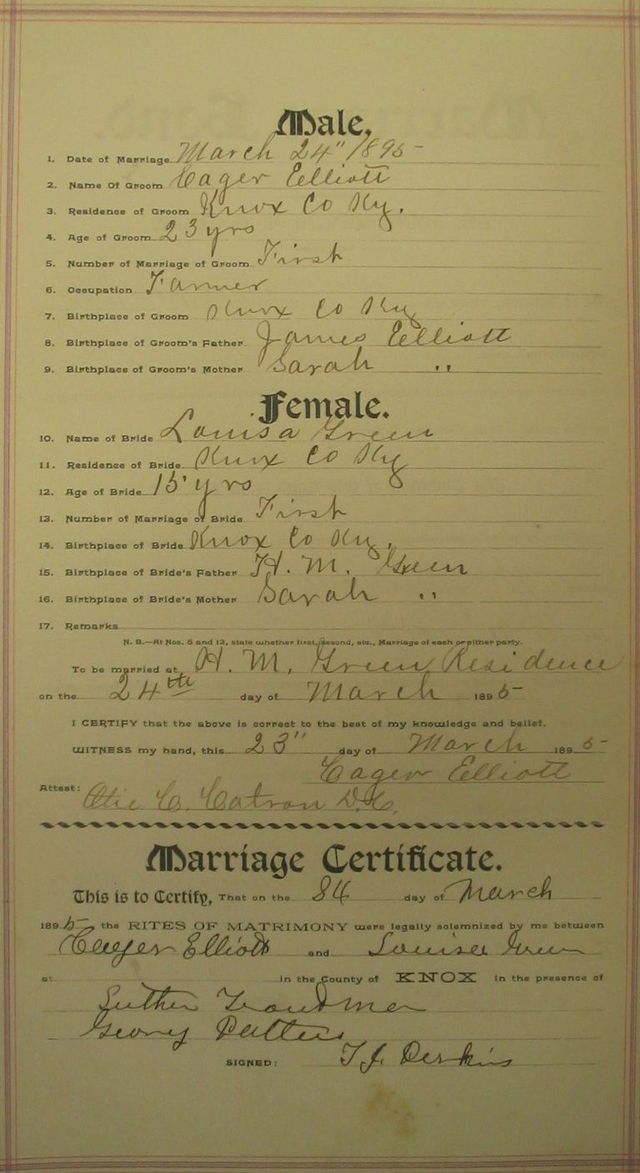 Male.
1. Date of Marriage March 24" 1895
2. Name Of Groom Cager Eelliott
3. Residence of Groom Knox Co Ky.
4. Age of Groom 23 yrs
5. Number of Marriage of Groom First
6. Occupation Farmer
7. Birthplace of Groom Knox Co Ky
8. Birthplace of Groom's Father James Eelliott
9. Birthplace of Groom's Mother Sarah "
Female.
10. Name of Bride Louisa Green
11. Residence of Bride Knox Co Ky
12. Age of Bride 15 yrs
13. Number of Marriage of Bride First
14. Birthplace of Bride Knox Co Ky.
15. Birthplace of Bride's Father H. M. Green
16. Birthplace of Bride's Mother Sarah "
17. Remarks
N. B.—At Nos. 5 and 13, state whether first, second, etc., Marriage of each or either party.
To be married at H. M. Green Residence
on the 24th day of March 1895
I CERTIFY that the above is correct to the best of my knowledge and belief.
WITNESS my hand, this 23" day of March 1895
Cager Elliott
Attest: Otie C. Catron D.C.
Marriage Certificate.
This is to Certify, That on the 84 day of March
1895 the RITES OF MATRIMONY were legally solemnized by me between
Cager Elliott and Louisa Green
at in the County of KNOX in the presence of
Luther
Georg
SIGNED: T J. Perkins